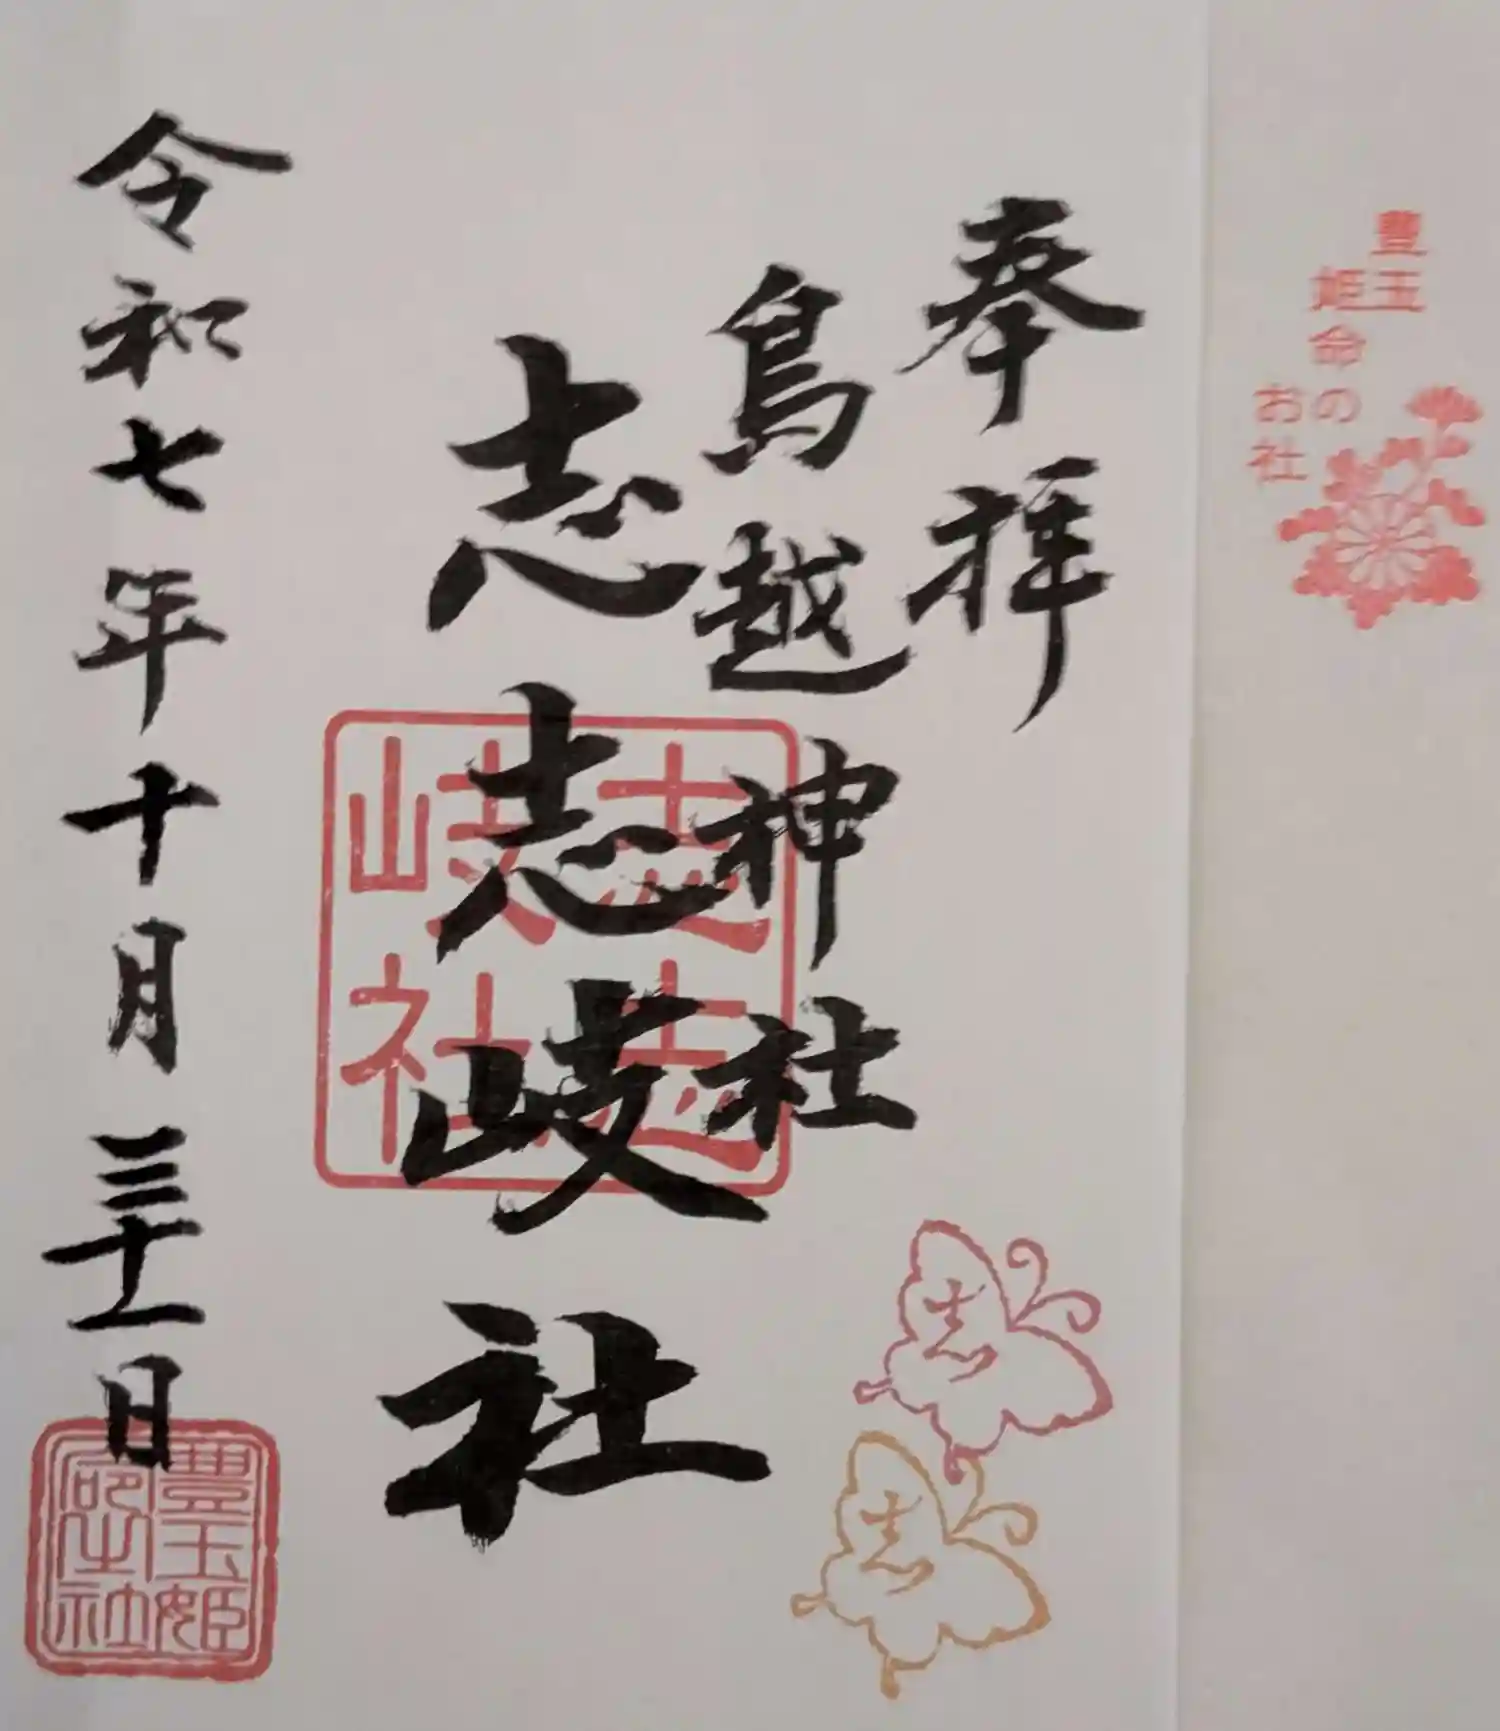 豊玉
姫命の
お社
奉拝
鳥越神社
志志岐社
志志
岐社
志
志
令和七年十月三十一日
豊玉姫
命之社